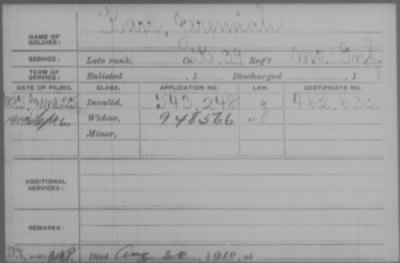 NAME OF SOLDIER: Karr, Jeremiah
SERVICE: Late rank, Co. K, 39 Reg't Mo. Inf.
TERM OF SERVICE: Enlisted , 1 Discharged , 1
DATE OF FILING. CLASS. APPLICATION NO. LAW. CERTIFICATE NO.
Invalid, 543,248 g 462,632
1910 Sept 6. Widow, 948566 "
Minor,
ADDITIONAL SERVICES:
REMARKS:
Died Aug 20, 1910, at